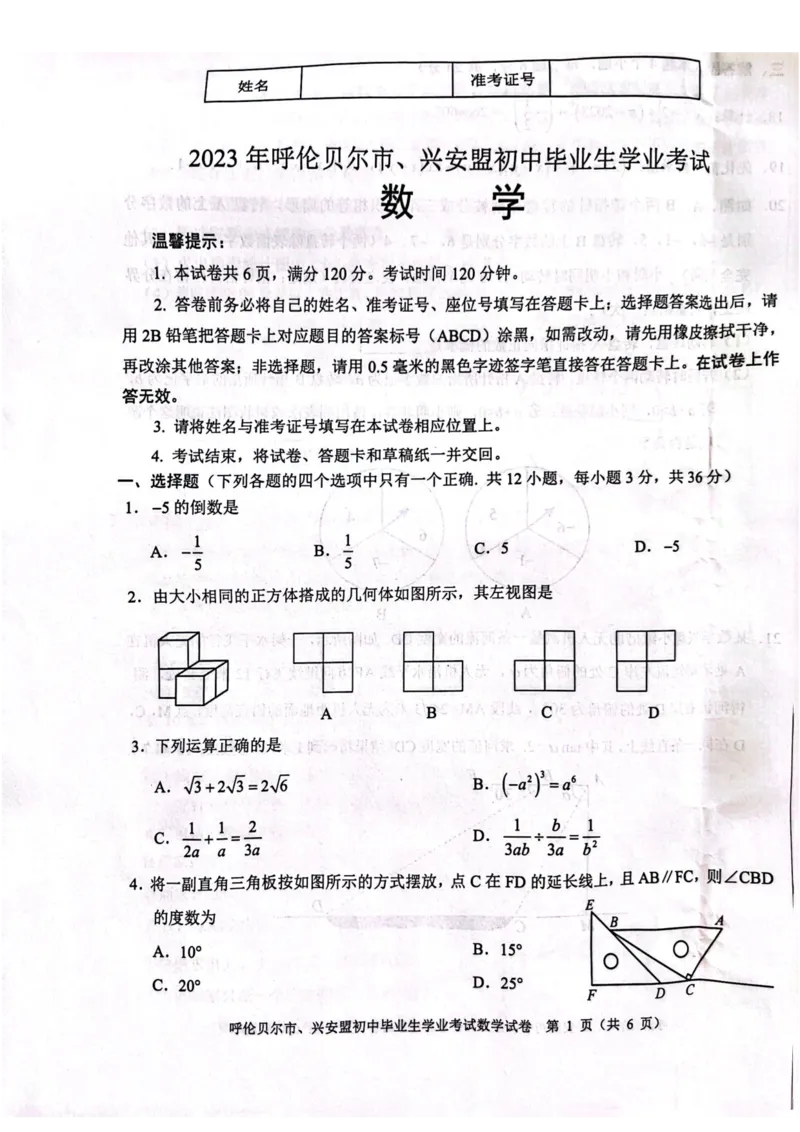 姓名 准考证号
2023 年呼伦贝尔市、兴安盟初中毕业生学业考试
数 学
温馨提示：
1. 本试卷共 6 页，满分 120 分。考试时间 120 分钟。
2. 答卷前务必将自己的姓名、准考证号、座位号填写在答题卡上；选择题答案选出后，请
用 2B 铅笔把答题卡上对应题目的答案标号（ABCD）涂黑，如需改动，请先用橡皮擦拭干净，
再改涂其他答案；非选择题，请用 0.5 毫米的黑色字迹签字笔直接答在答题卡上。在试卷上作
答无效。
3. 请将姓名与准考证号填写在本试卷相应位置上。
4. 考试结束，将试卷、答题卡和草稿纸一并交回。
一、选择题（下列各题的四个选项中只有一个正确. 共 12 小题，每小题 3 分，共 36 分）
1. −5 的倒数是
A. −1/5 B. 1/5 C. 5 D. −5
2. 由大小相同的正方体搭成的几何体如图所示，其左视图是
A B C D
3. 下列运算正确的是
A. √3+2√3=2√6 B. (−a²)³=a⁶
C. 1/2a+1/a=2/3a D. 1/3ab÷b/3a=1/b²
4. 将一副直角三角板按如图所示的方式摆放，点 C 在 FD 的延长线上，且 AB∥FC，则∠CBD
的度数为
E B A
A. 10° B. 15°
C. 20° D. 25°
F D C
呼伦贝尔市、兴安盟初中毕业生学业考试数学试卷 第 1 页（共 6 页）